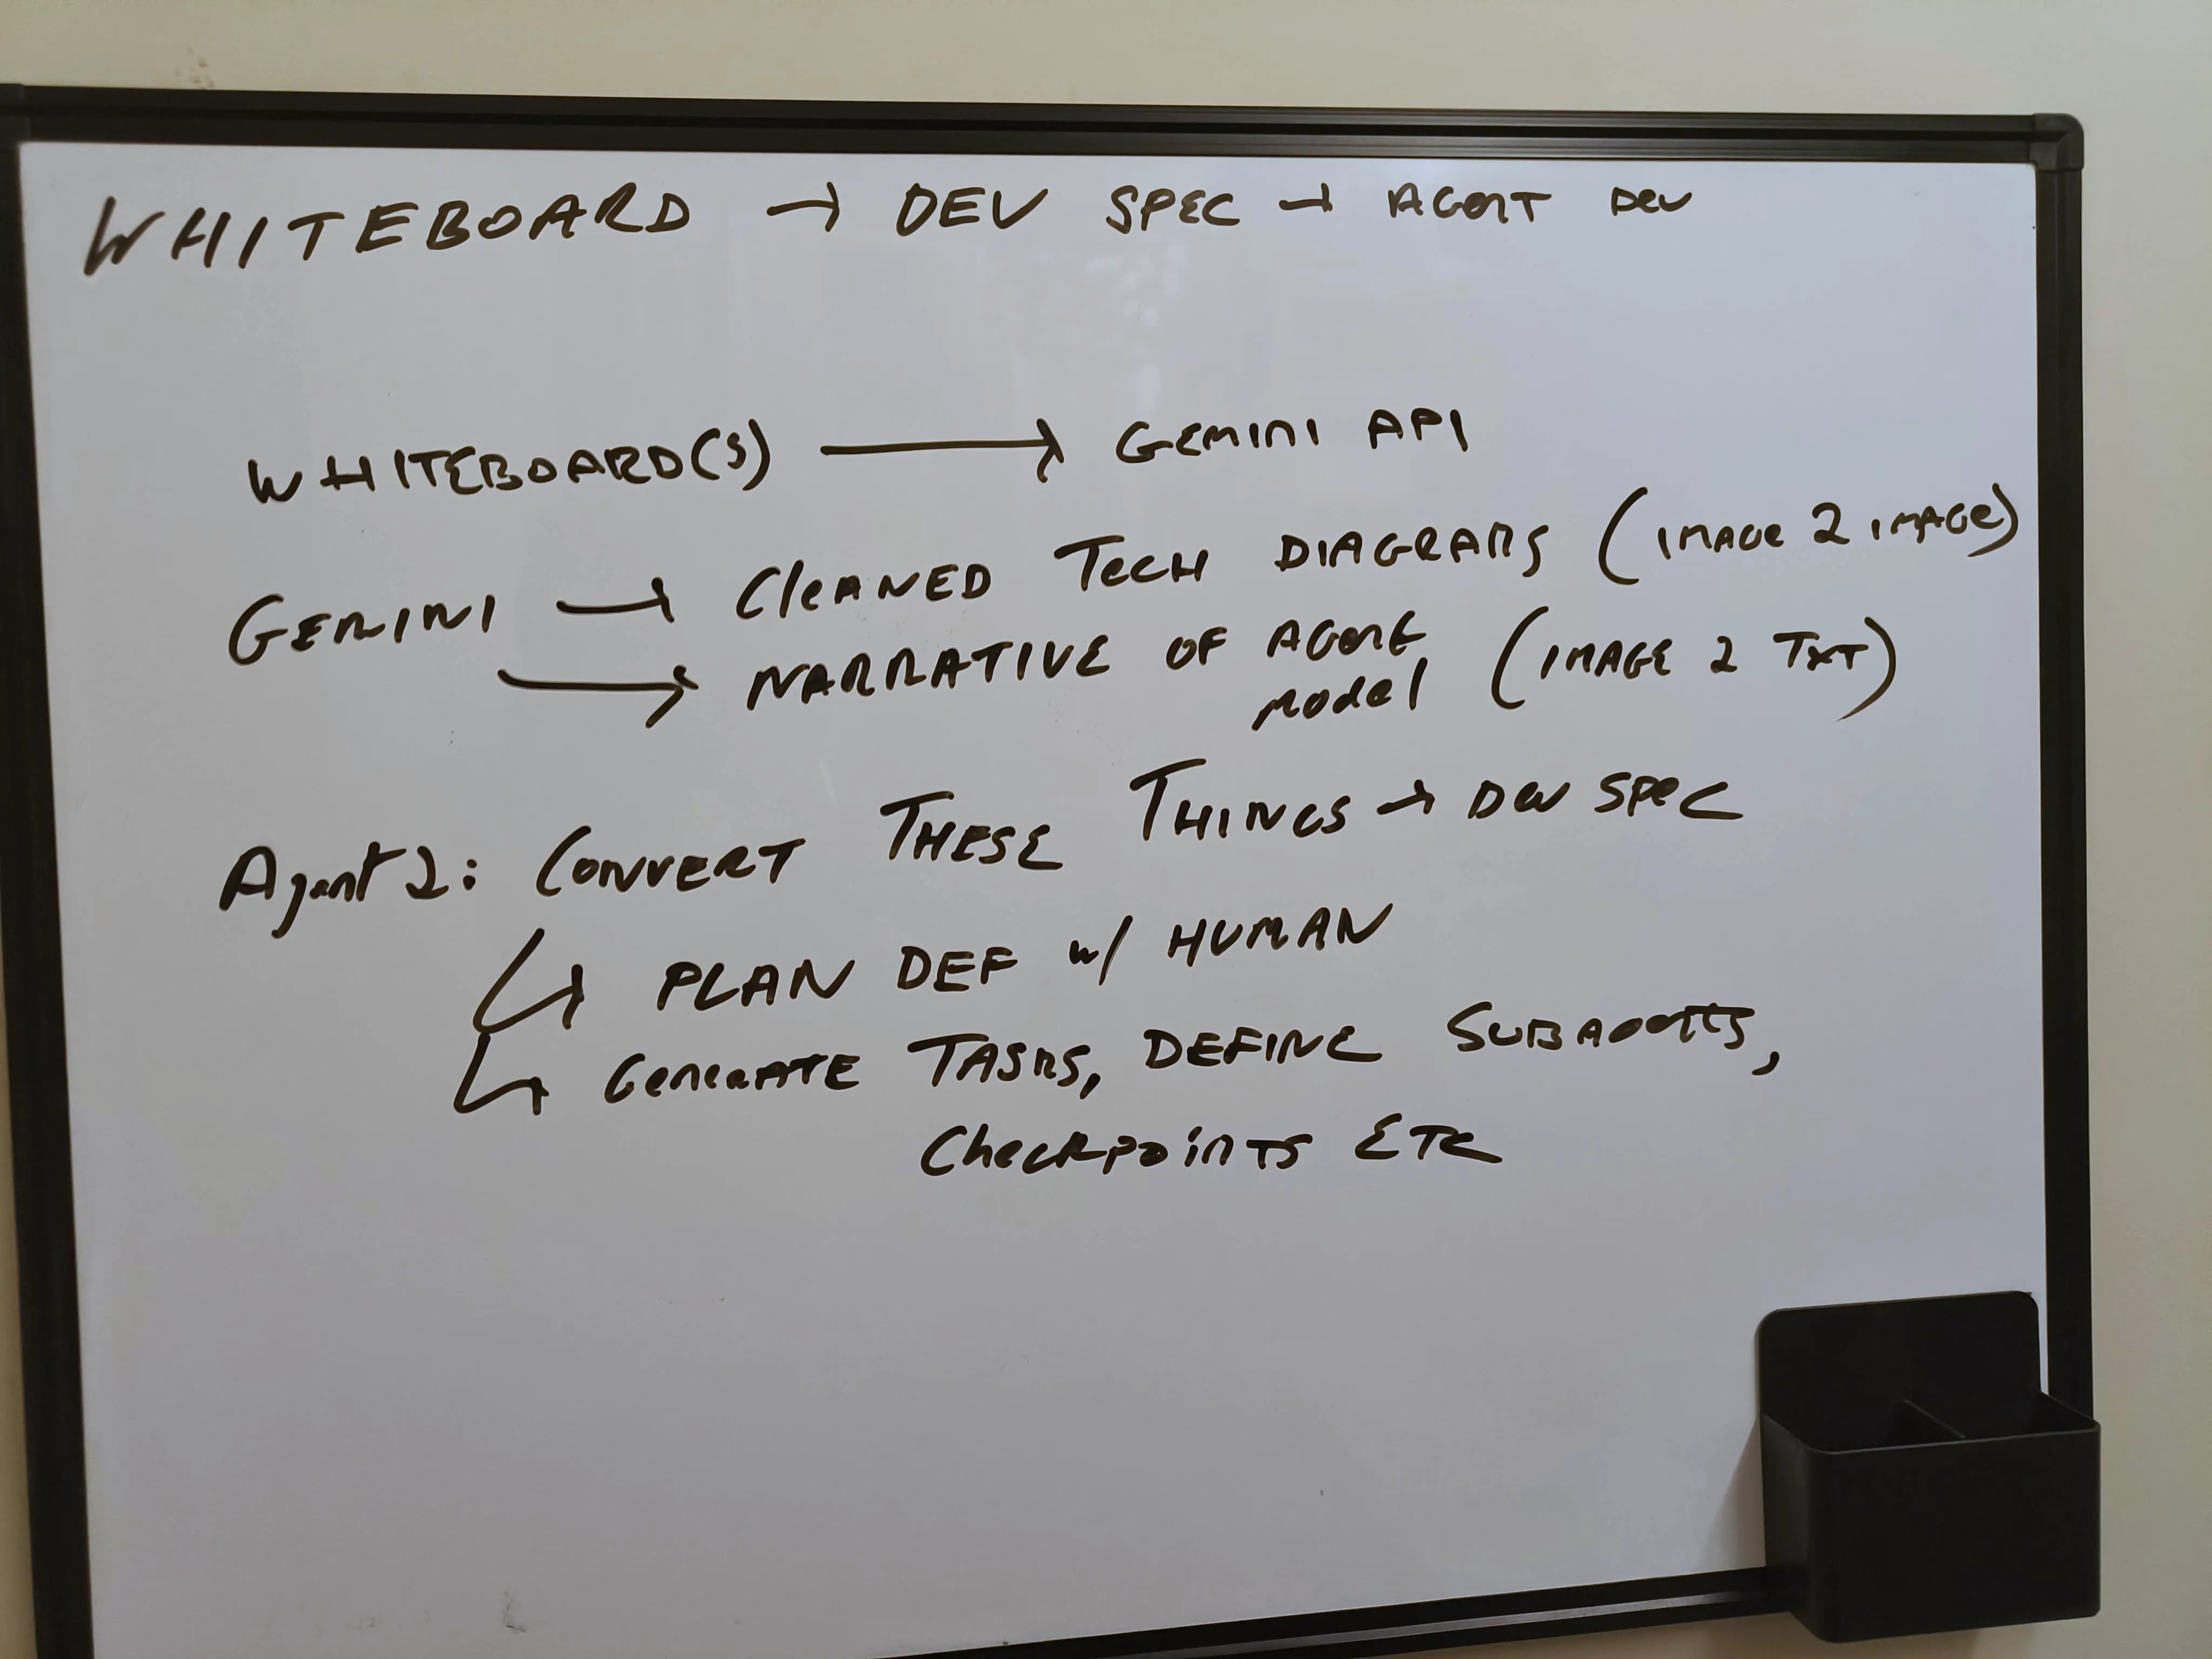 WHITEBOARD → DEV SPEC → AGENT DEV
WHITEBOARD(S) → GEMINI API
GEMINI → CLEANED TECH DIAGRAMS (IMAGE 2 IMAGE)
→ NARRATIVE OF AGENT MODEL (IMAGE 2 TXT)
Agent 2: CONVERT THESE THINGS → DEV SPEC
↳ PLAN DEF w/ HUMAN
↳ GENERATE TASKS, DEFINE SUBAGENTS,
CHECKPOINTS ETC